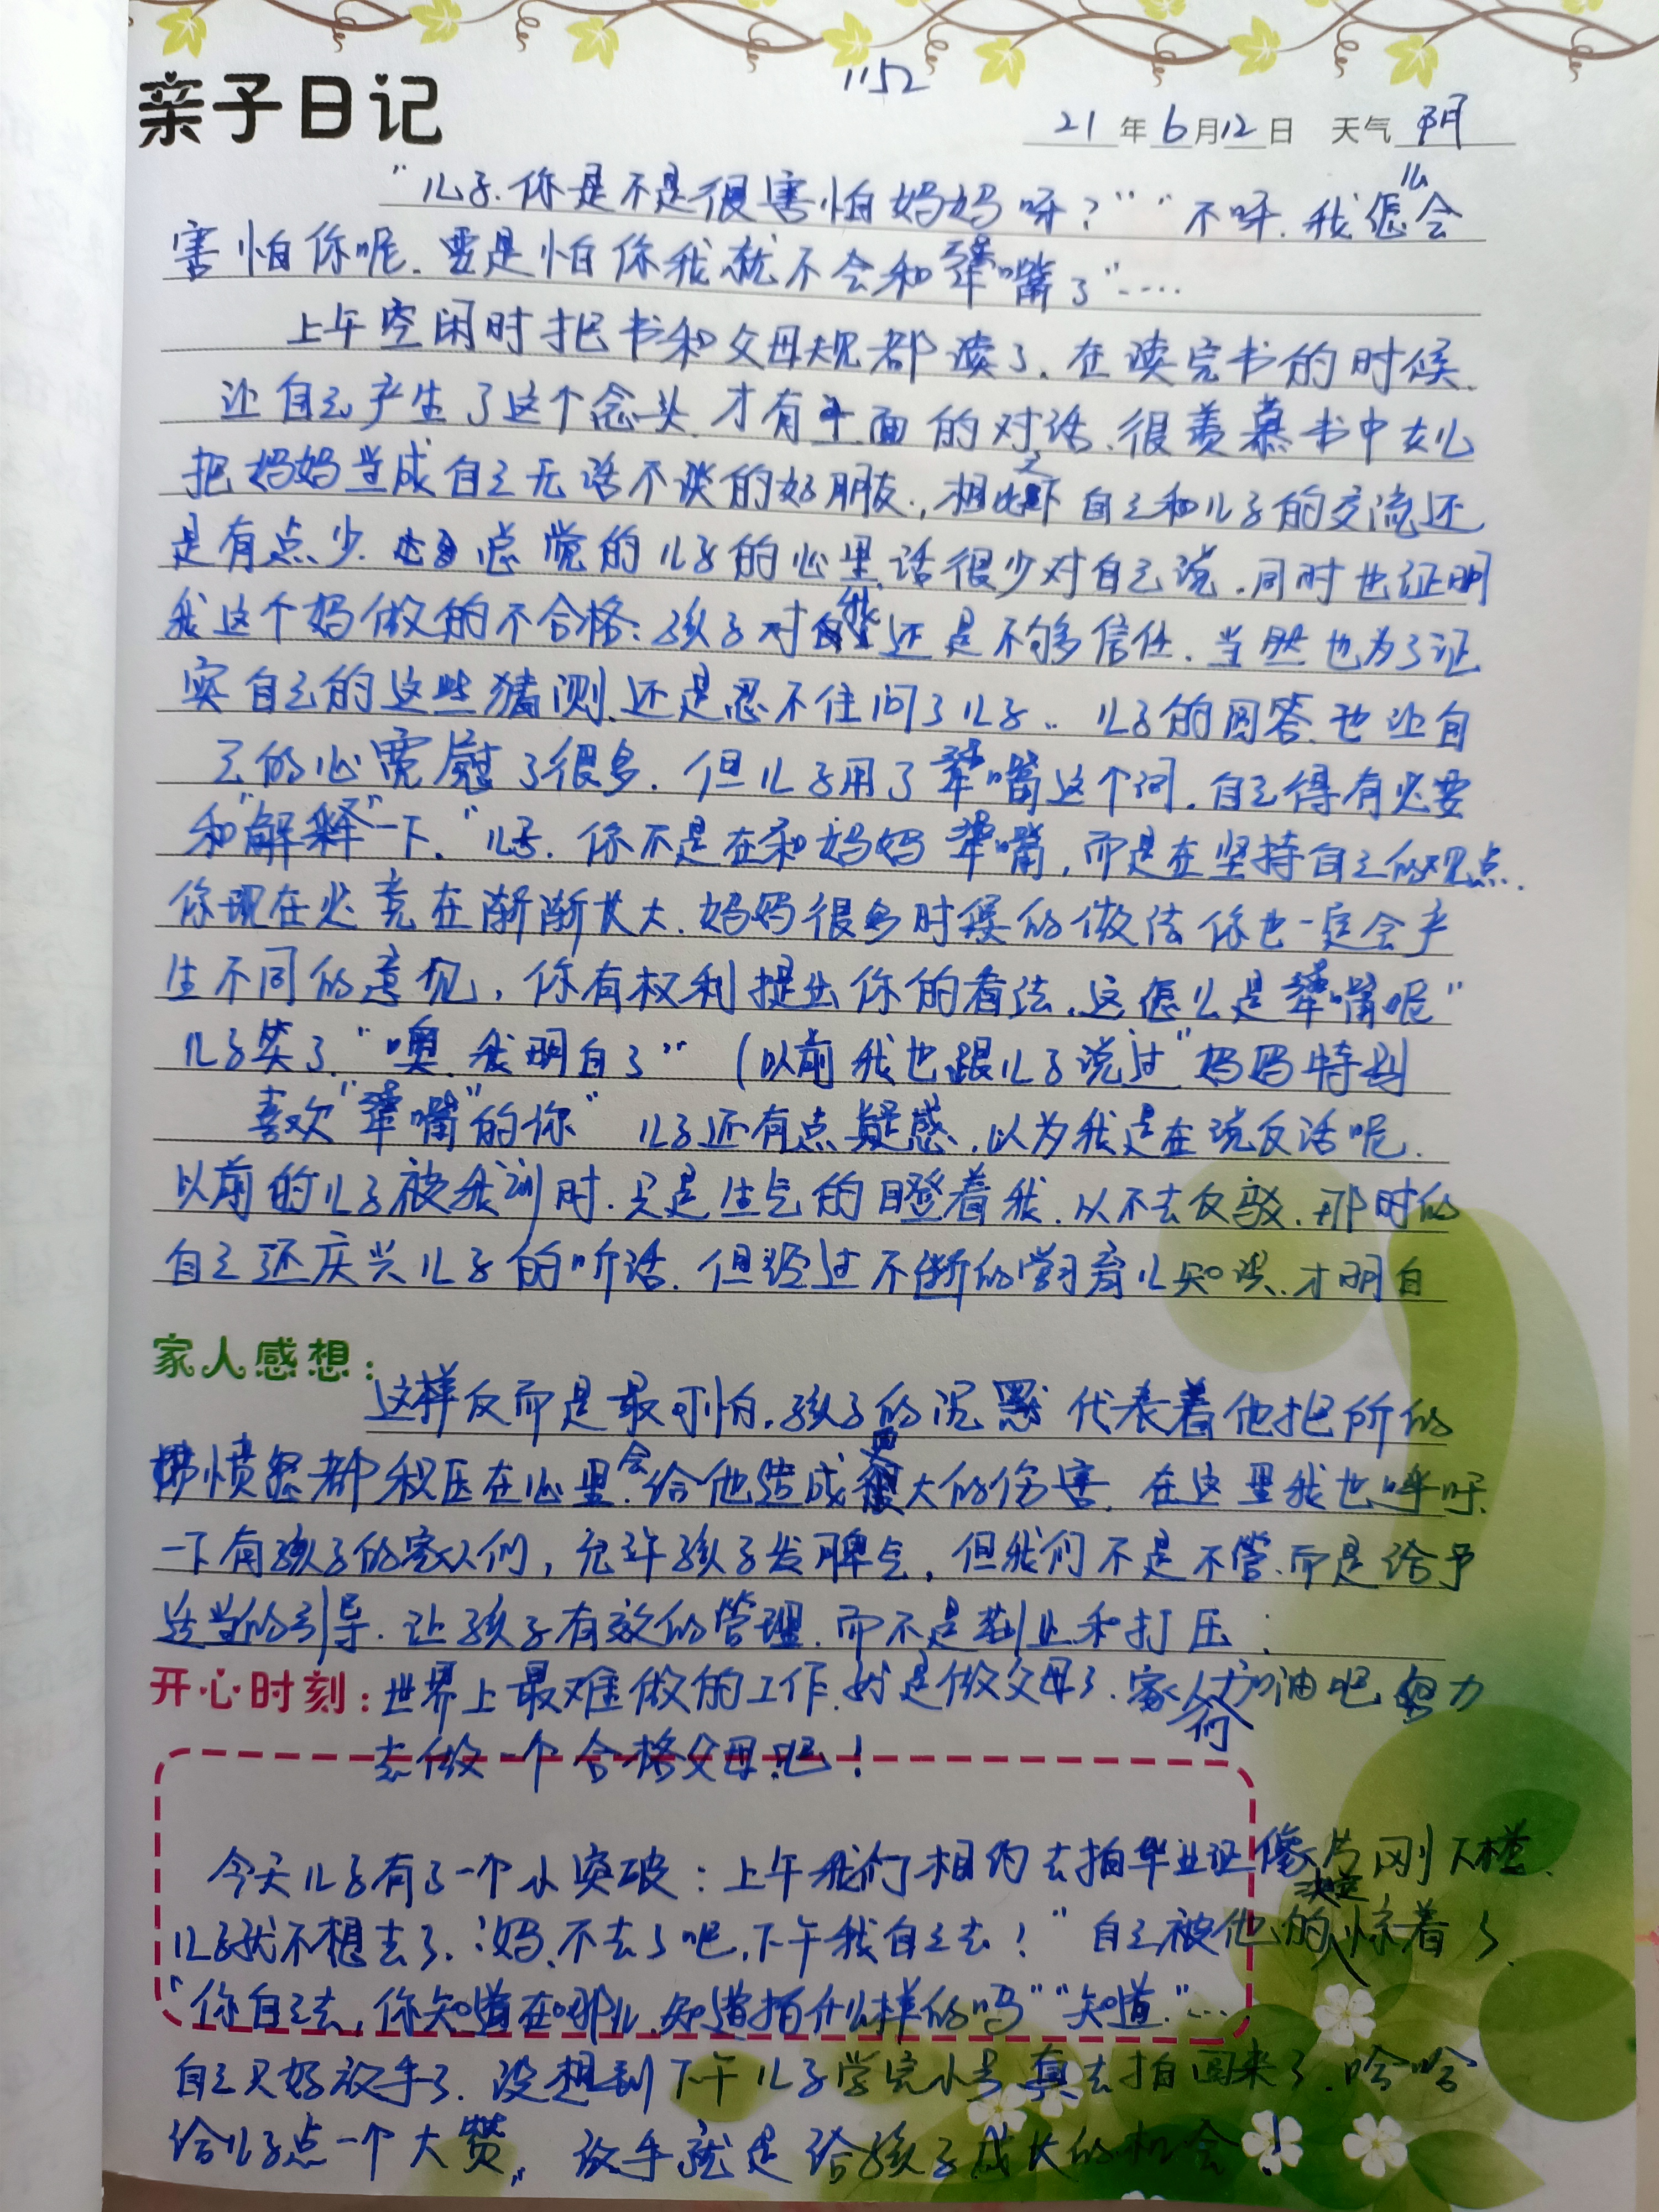 1152
亲子日记 21年6月12日 天气 阴
"儿子.你是不是很害怕妈妈呀?""不呀.我怎么会
害怕你呢.要是怕你我就不会和犟嘴了"……
上午空闲时把书和父母规都读了.在读完书的时候.
让自己产生了这个念头.才有上面的对话.很羡慕书中女儿
把妈妈当成自己无话不谈的好朋友.,相比之下自己和儿子的交流还
是有点少.总觉的儿子的心里话很少对自己说.同时也证明
我这个妈做的不合格:孩子对我还是不够信任.当然也为了证
实自己的这些猜测.还是忍不住问了儿子..儿子的回答.也让自
己的心宽慰了很多.但儿子用了犟嘴这个词.自己得有必要
和"解释"一下."儿子.你不是在和妈妈犟嘴,而是在坚持自己的观点.
你现在必竟在渐渐长大.妈妈很多时候的做法你也一定会产
生不同的意见,你有权利提出你的看法.这怎么是犟嘴呢"
儿子笑了"噢.我明白了"(以前我也跟儿子说过"妈妈特别
喜欢"犟嘴"的你"儿子还有点疑惑.以为我是在说反话呢.
以前的儿子被我训时.只是生气的瞪着我.从不去反驳.那时的
自己还庆兴儿子的听话.但经过不断的学习育儿知识.才明白
家人感想:
这样反而是最可怕.孩子的沉默代表着他把所的
愤怒都积压在心里.会给他造成更大的伤害.在这里我也呼吁
一下有孩子的家人们,允许孩子发脾气,但我们不是不管.而是给予
适当的引导.让孩子有效的管理.而不是制止和打压.
开心时刻:世界上最难做的工作.就是做父母了.家人们加油吧 努力
去做一个合格父母吧!
今天儿子有了一个小突破:上午我们相约去拍毕业证像片刚下楼.
儿子就不想去了."妈.不去了吧.下午我自己去!"自己被他的决定惊着了
"你自己去,你知道在哪儿.知道拍什么样的吗""知道."…
自己只好放手了.没想到下午儿子学完小号真去拍回来了.哈哈
给儿子点一个大赞,放手就是给孩子成长的机会!